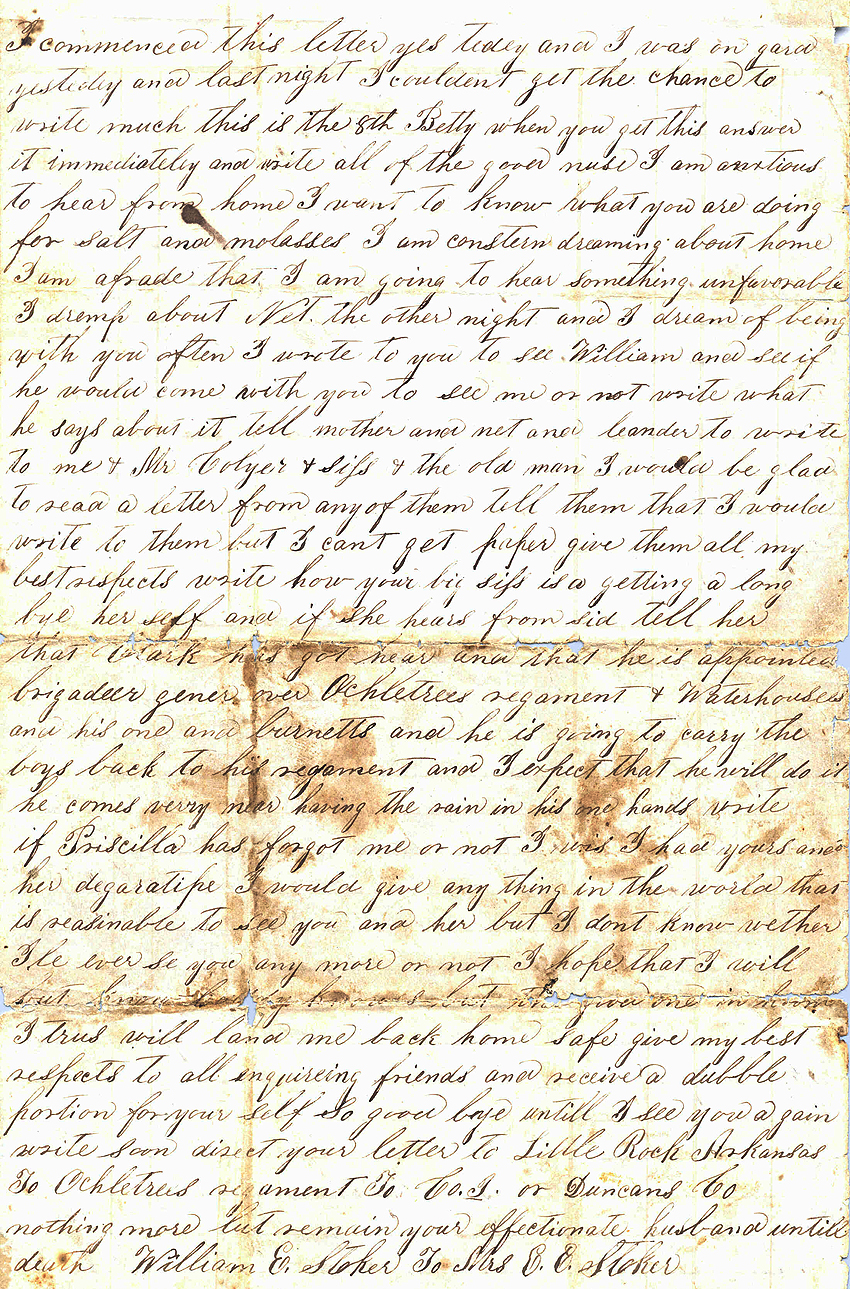 I commenced this letter yes tedey and I was on gard
yestedey and last night I couldent get the chance to
write much this is the 8th Betty when you get this answer
it immediateley and write all of the good nuse I am anxtious
to hear from home I want to know what you are doing
for salt and molasses I am constern dreaming about home
I am afrade that I am going to hear something unfavorable
I dremp about Net. the other night and I dream of being
with you often I wrote to you to see William and see if
he would come with you to see me or not write what
he says about it tell mother and net and leander to write
to me & Mr Colyer & siss & the old man I would be glad
to read a letter from any of them tell them that I would
write to them but I cant get paper give them all my
best respects write how your big siss is a getting a long
bye her self and if she hears from sid tell her
that Clark his got hear and that he is appointed
brigadeer gener over Ochletrees regament & Waterhouses
and his one and burnetts and he is going to carry the
boys back to his regament and I expect that he will do it
he comes verry near having the rain in his one hands write
if Priscilla has forgot me or not I wis I had yours and
her degaratipe I would give any thing in the world that
is reasinable to see you and her but I dont know wether
Ile ever se you any more or not I hope that I will
but know boddy knows but the good one in
I trus will land me back home safe give my best
respects to all enquireing friends and receive a dubble
portion for your self So good bye untill I see you a gain
write soon direct your letter to Little Rock Arkansas
To Ochletrees regament To Co. I. or Duncans Co
nothing more but remain your effectionate husband untill
death William E. Stoker To Mrs E. E. Stoker